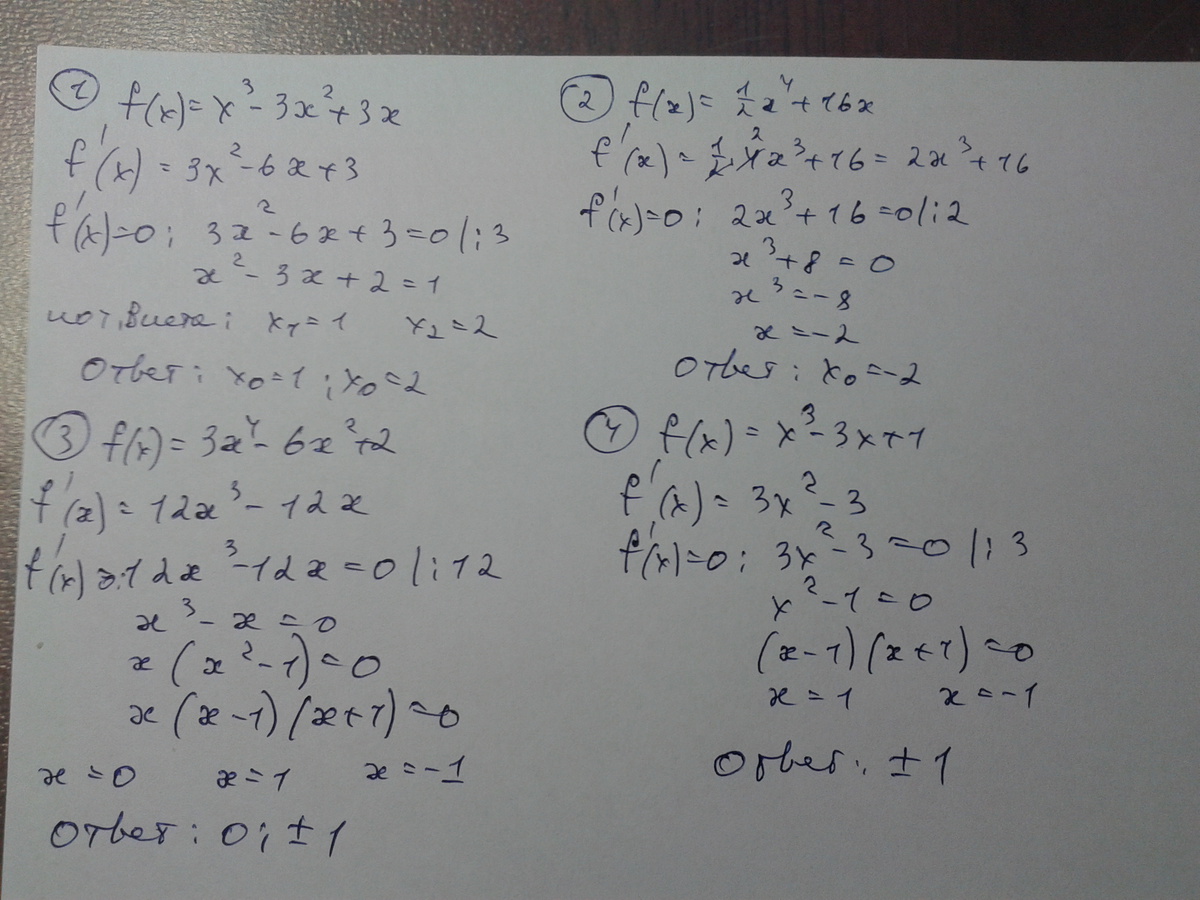 ① f(x)=x³-3x²+3x
f'(x)=3x²-6x+3
f'(x)=0; 3x²-6x+3=0 |:3
x²-3x+2=1
по т. Виета: x₁=1 x₂=2
Ответ: x₀=1; x₀=2
② f(x)=1/2x⁴+16x
f'(x)=1/2·4x³+16=2x³+16
f'(x)=0; 2x³+16=0 |:2
x³+8=0
x³=-8
x=-2
Ответ: x₀=-2
③ f(x)=3x⁴-6x²+2
f'(x)=12x³-12x
f'(x)=0: 12x³-12x=0 |:12
x³-x=0
x(x²-1)=0
x(x-1)(x+1)=0
x=0 x=1 x=-1
Ответ: 0; ±1
④ f(x)=x³-3x+1
f'(x)=3x²-3
f'(x)=0; 3x²-3=0 |:3
x²-1=0
(x-1)(x+1)=0
x=1 x=-1
Ответ: ±1